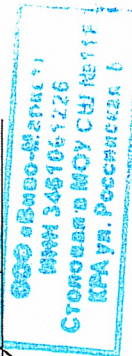 ООО «Виво-Маркет»
ИНН 3461061226
Столовая МОУ СШ №111
КРА ул. Российская, 6